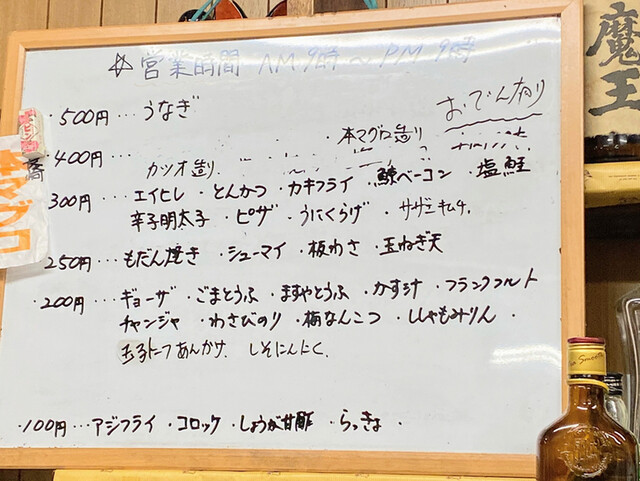 ☆営業時間 AM9時〜PM9時
おでん有り
・500円…うなぎ
・400円…
本マグロ造り
カツオ造り
300円…エイヒレ・とんかつ・カキフライ・鯨ベーコン・塩鮭
辛子明太子・ピザ・うにくらげ・サザエキムチ.
250円…もだん焼き・シューマイ・板わさ・玉ねぎ天
・200円…ギョーザ・ごまとうふ・ますやとうふ・かす汁・フランクフルト
チャンジャ・わさびのり・梅なんこつ・ししゃもみりん・
玉子トーフあんかけ. しそにんにく.
・100円…アジフライ・コロッケ・しょうが甘酢・らっきょ・
本マグロ
魔王